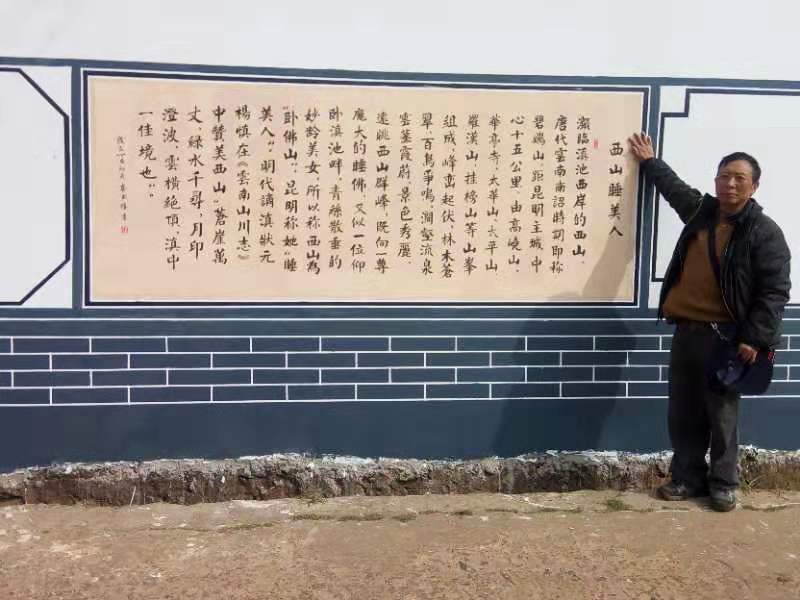 西山睡美人
濒临滇池西岸的西山,
唐代雲南南詔時調即称
碧鷄山。距昆明主城中
心十五公里,由高嶢山、
華亭寺、太華山、太平山
羅漢山、挂榜山等山峯
组成;峰峦起伏,林木蒼
翠,百鳥争鳴,澗壑流泉
雲蒸霞蔚,景色秀麗。
遠眺西山群峰,既向一尊
龐大的睡佛,又似一位仰
卧滇池畔,青絲散垂的
妙龄美女,所以称西山為
"卧佛山",昆明称她"睡
美人"。明代謫滇狀元
楊慎在《雲南山川志》
中赞美西山"蒼崖萬
丈,緑水千尋,月印
澄波,雲横絶頂,滇中
一佳境也"。